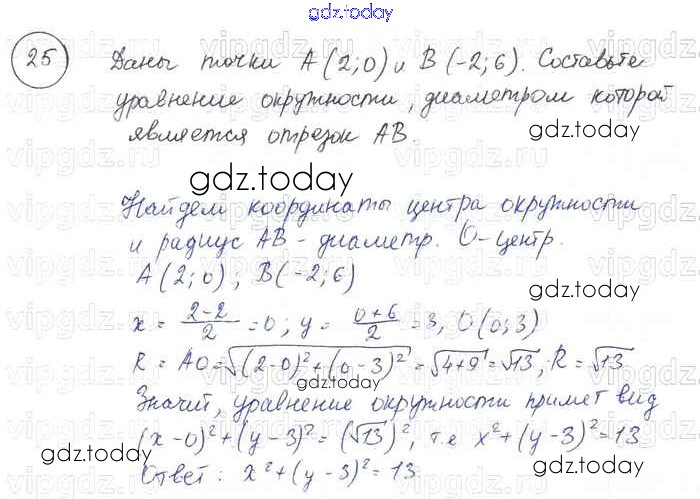 gdz.today
25 Даны точки A(2;0) и B(-2;6). Составьте
уравнение окружности, диаметром которой
является отрезок AB.
gdz.today
gdz.today
Найдем координаты центра окружности
и радиус AB - диаметр. O - центр.
A(2;0), B(-2;6)
gdz.today
x = (2-2)/2 = 0; y = (0+6)/2 = 3, O(0;3)
R = AO = √((2-0)²+(0-3)²) = √(4+9) = √13, R = √13
gdz.today
Значит, уравнение окружности примет вид
(x-0)²+(y-3)²=(√13)², т.е x²+(y-3)²=13
gdz.today
Ответ: x²+(y-3)²=13
gdz.today
vipgdz.ru